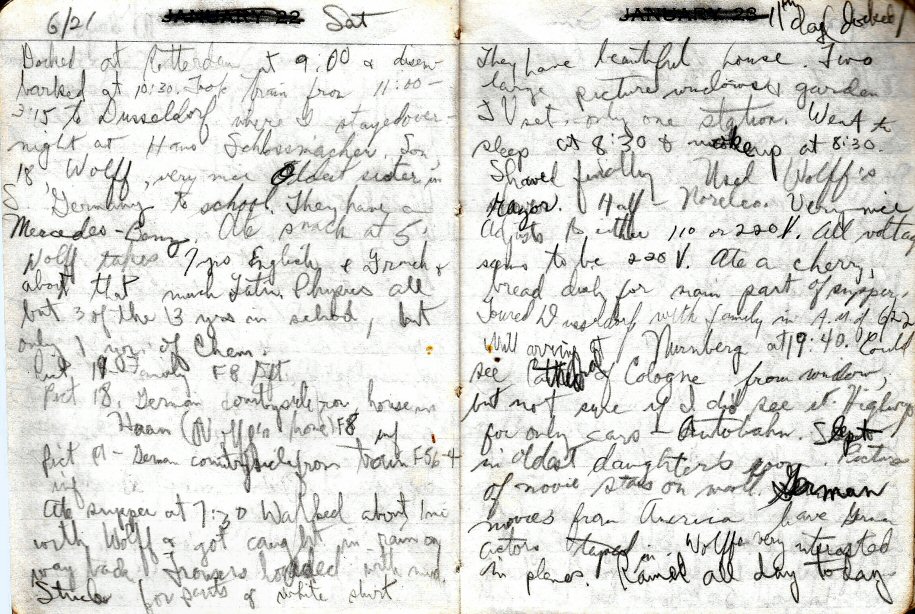 6/21 Sat
Docked at Rotterdam at 9:00 & disem-
barked at 10:30. Took train from 11:00-
3:15 to Dusseldorf were I stayed over-
night at Hans Schossmacher. Son,
18 Wolff, very nice Oldest sister in
S. Germany to school. They have a
Mercedes-Benz. Ate snack at 5.
Wolff takes 7 yrs English & French &
about that much Latin. Physics all
but 3 of the 13 yrs in school, but
only 1 yr. of Chem.
Family F8
Pict 18, German countryside from house in
Haan (Wolff's home) F8 inf
Pict 19 - German countryside from train F5.6 4
inf
Ate supper at 7:30 Walked about 1 mi
with Wolff & got caught in rain on
way back. Trowsers loaded with mud.
Stuck for pants & white shirt.
JANUARY 23 11th day docked
They have beautiful house. Two
large picture windows, garden
TV set: only one station. Went to
sleep at 8:30 & woke up at 8:30.
Shaved finally Used Wolff's
razor. Half - Norelco. Very nice
Adjusts to either 110 or 220 V. All voltage
seems to be 220 V. Ate a cherry,
bread dish for main part of supper.
Toured Dusseldorf with family in A.M. of 6/22
Will arrive at Nurnberg at 19:40. Could
see Cathedral of Cologne from window,
but not sure if I did see it. Highway
for only cars - Autobahn. Slept
in oldest daughter's room. Pictures
of movie stars on wall. German
movies from America have German
actors taped in. Wolff very interested
in planes. Rained all day today